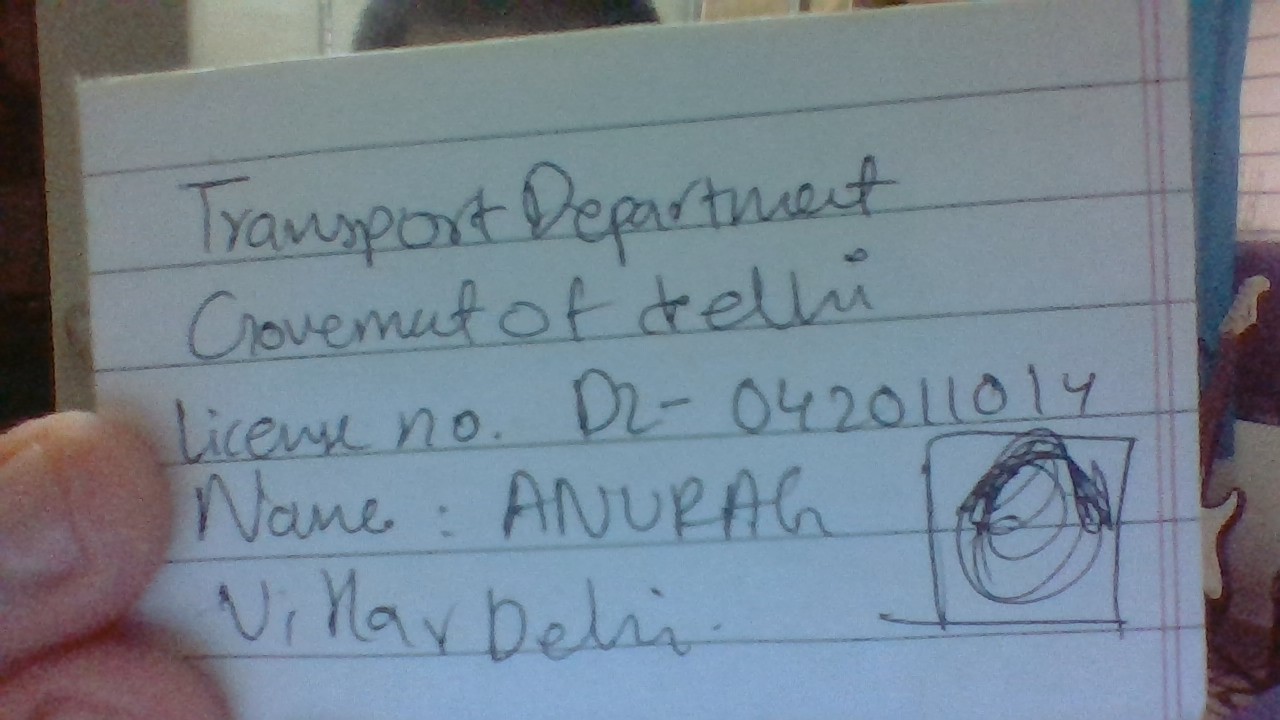 Transport Department
Govemut of delhi
License no. DL- 042011014
Name : ANURAG
Vihar Delhi.